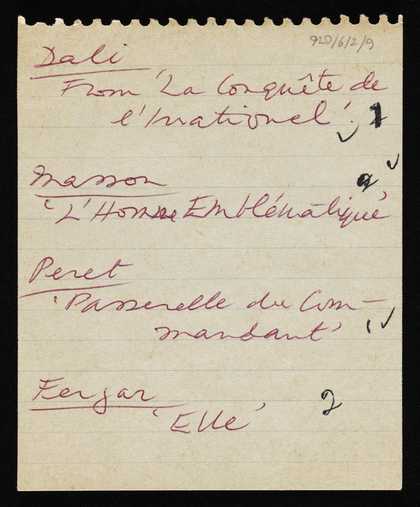 920/6/2/9
Dali
From 'La Conquête de
l'Irrationel'. 1
Masson
'L'Homme Emblématique' 9
Peret
'Passerelle du Com-
mandant' 1
Fergar
'Elle' 2